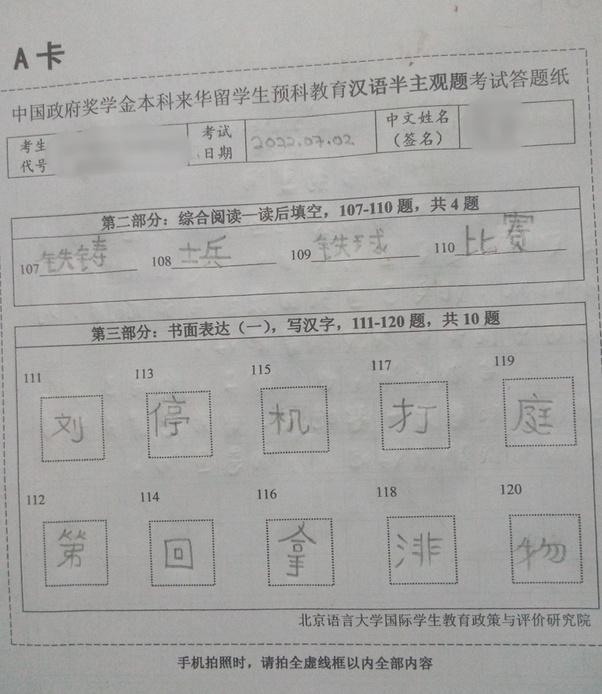 A卡
中国政府奖学金本科来华留学生预科教育汉语半主观题考试答题纸
考生代号 考试日期 2022.07.02 中文姓名（签名）
第二部分：综合阅读—读后填空，107-110 题，共 4 题
107 铁铸 108 士兵 109 铁球 110 比赛
第三部分：书面表达（一），写汉字，111-120 题，共 10 题
111 113 115 117 119
刘 停 机 打 庭
112 114 116 118 120
第 回 拿 排 物
北京语言大学国际学生教育政策与评价研究院
手机拍照时，请拍全虚线框以内全部内容